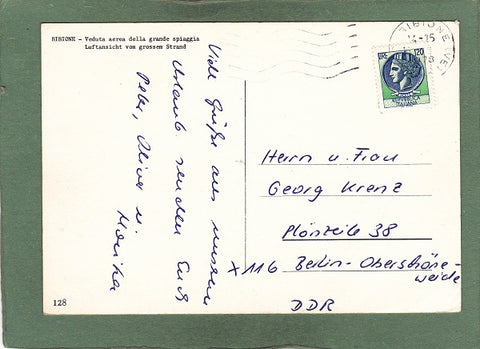 BIBIONE - Veduta aerea della grande spiaggia
Luftansicht vom grossem Strand
Viele Grüße aus unserem
Urlaub senden Euch
Peter, u.
Monika
128
BIBIONE (VE)
14-15
LIRE 120
Herrn u. Frau
Georg Krenz
Plönzeile 38
X 116 Berlin-Oberschöne-
weide
DDR